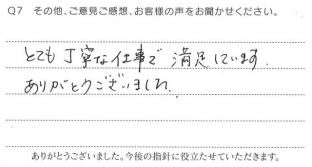 Q7 その他、ご意見ご感想、お客様の声をお聞かせください。
とても丁寧な仕事で満足しています。
ありがとうございました。
ありがとうございました。今後の指針に役立たせていただきます。